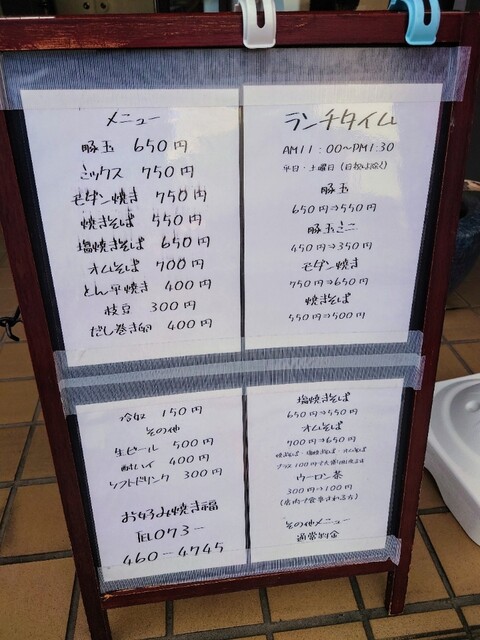 メニュー
豚玉 650円
ミックス 750円
モダン焼き 750円
焼きそば 550円
塩焼きそば 650円
オムそば 700円
とん平焼き 400円
枝豆 300円
だし巻き卵 400円
冷奴 150円
その他
生ビール 500円
酎ハイ 400円
ソフトドリンク 300円
お好み焼き福
TEL 073-
460-4745
ランチタイム
AM11:00〜PM1:30
平日・土曜日(日祝は除く)
豚玉
650円⇒550円
豚玉ミニ
450円⇒350円
モダン焼き
750円⇒650円
焼きそば
550円⇒500円
塩焼きそば
650円⇒550円
オムそば
700円⇒650円
焼そば・塩焼そば・オムそば
プラス100円で大盛り出来ます
ウーロン茶
300円⇒100円
(店内で食事される方)
その他メニュー
通常料金